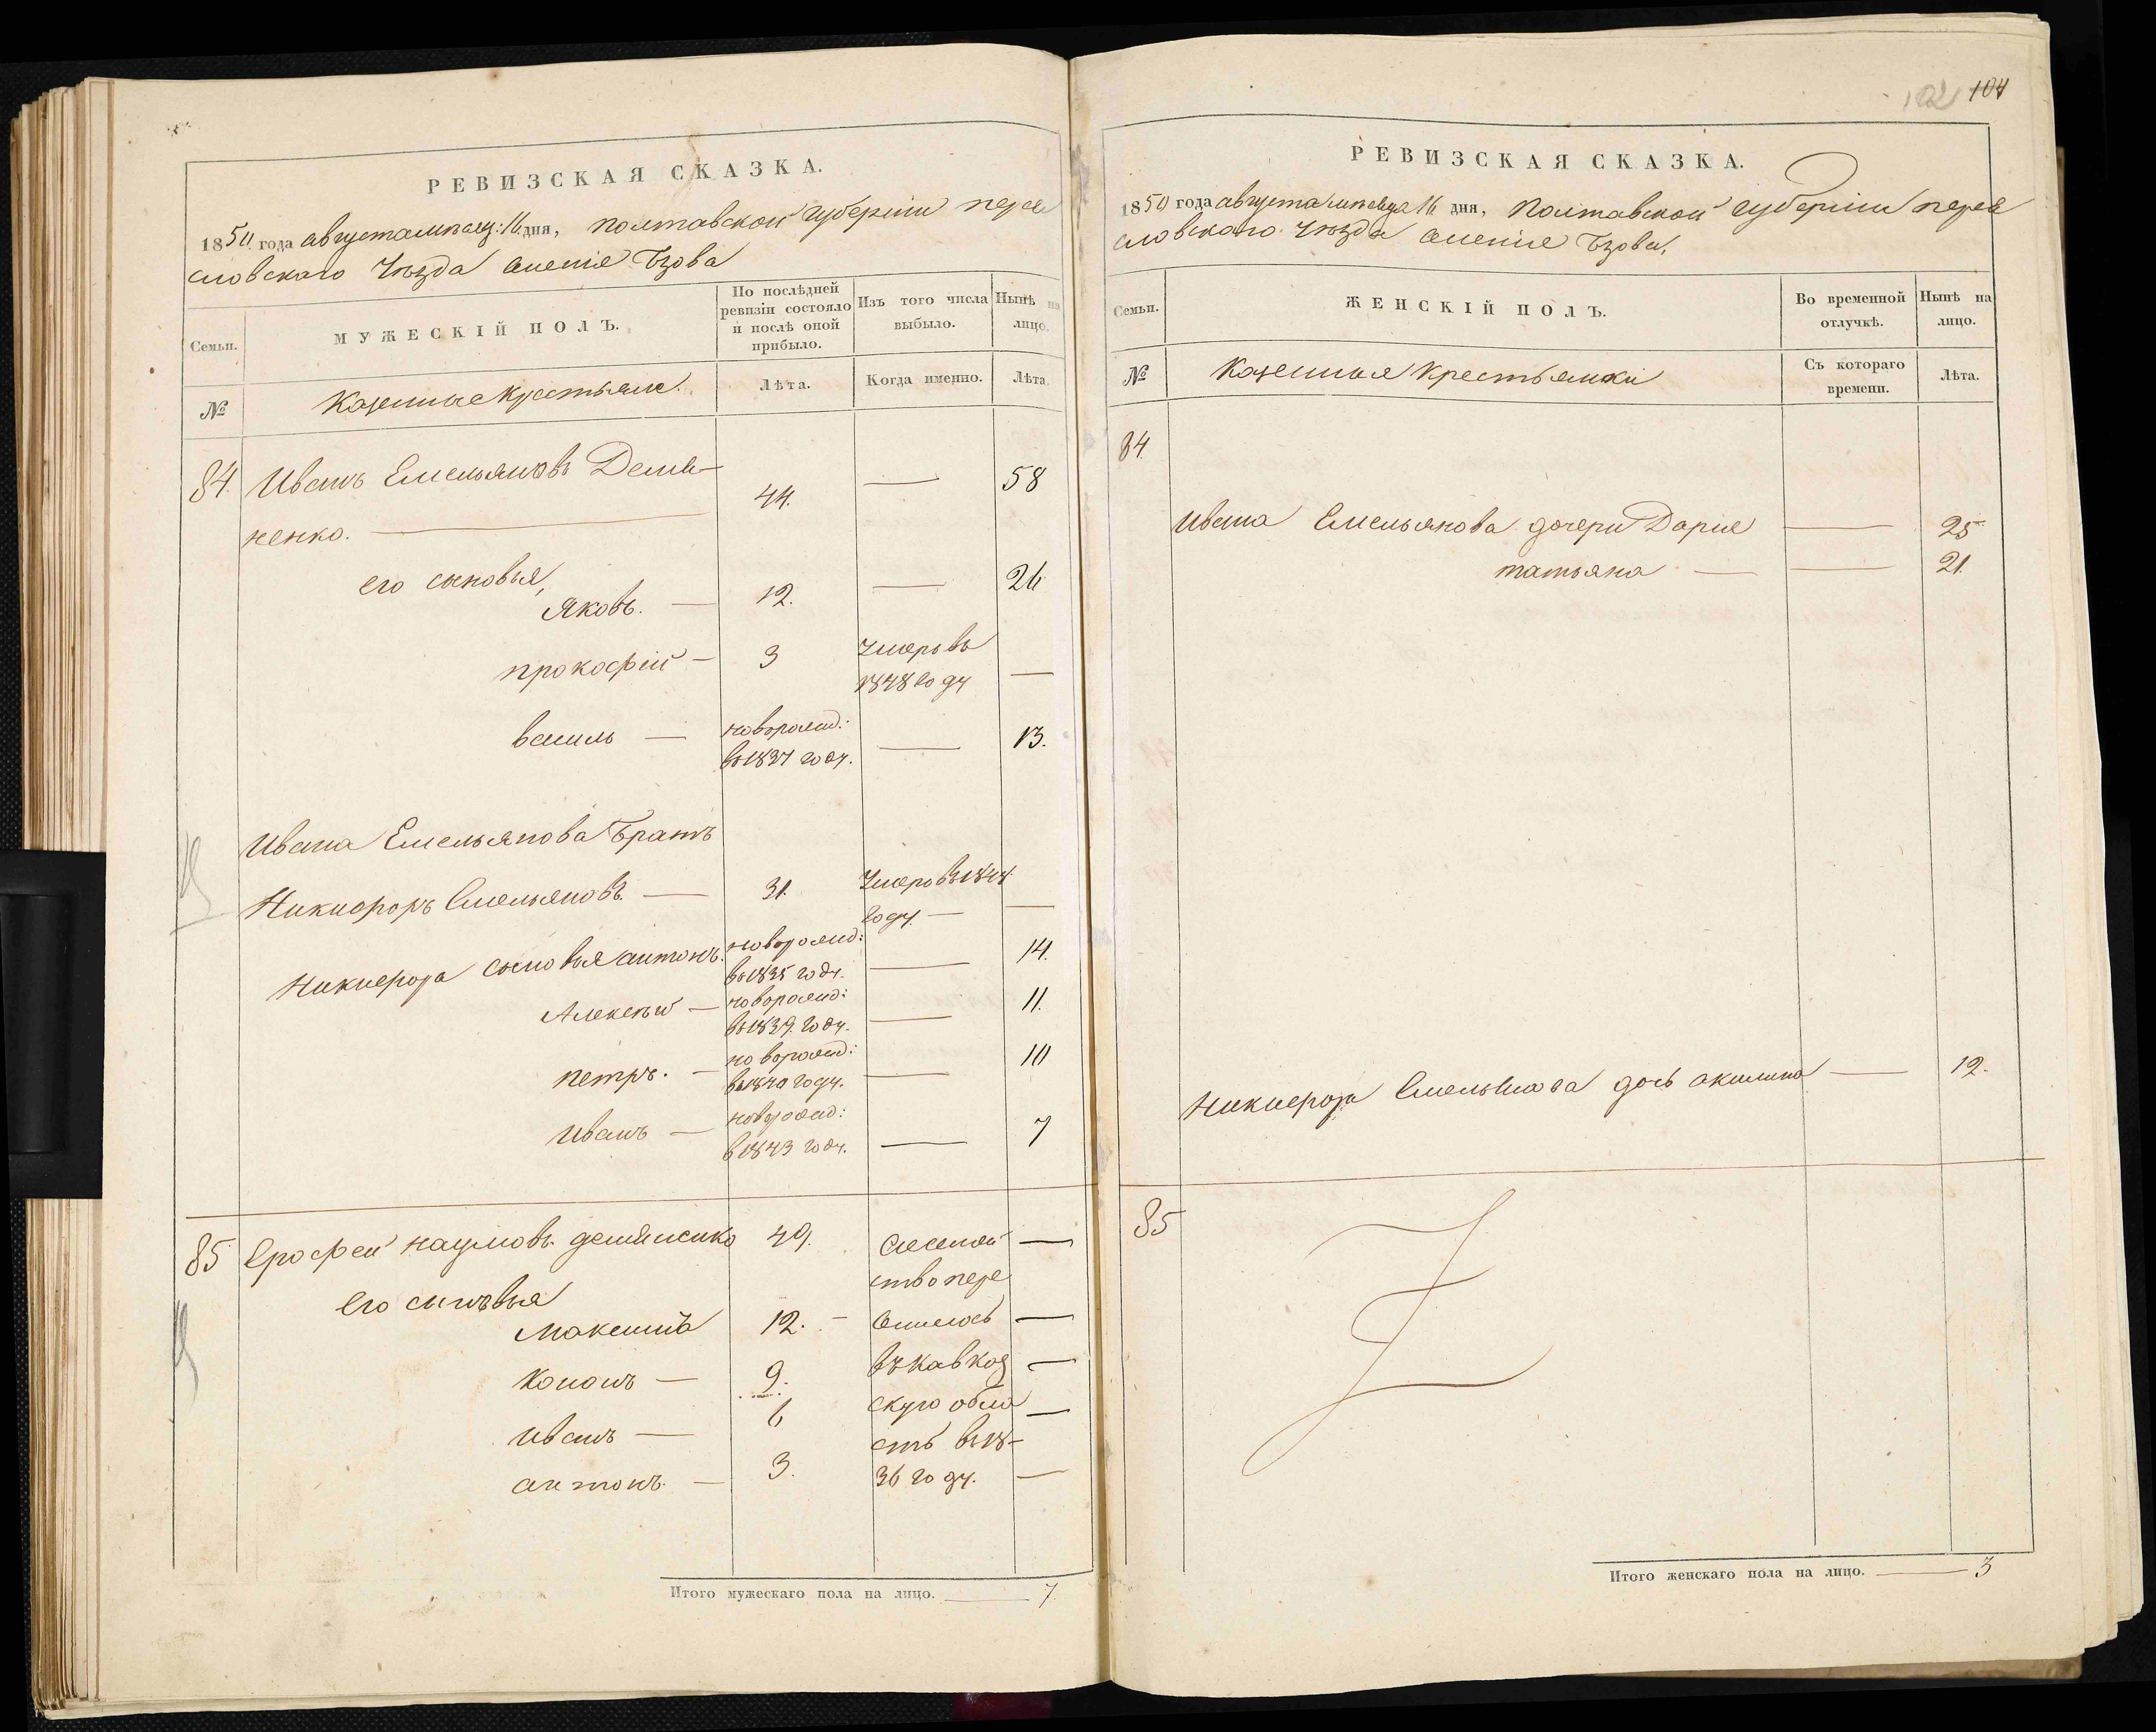 РЕВИЗСКАЯ СКАЗКА.
1850 года августа месяц: 16 дня, полтавской губернии перея
словскаго уезда селение Бзова
Семьи.
МУЖЕСКІЙ ПОЛЪ.
По послѣдней
ревизіи состояло
и послѣ оной
прибыло.
Изъ того числа
выбыло.
Нынѣ на
лицо.
№
Казенные крестьяне.
Лѣта.
Когда именно.
Лѣта
84. Иванъ Емельяновъ Деми-
ненко.
44.
—
58
его сыновья,
Яковъ. — 12. — 26
прокофій — 3
умеръ въ
1848 году —
василь —
новорожд:
въ 1837 году. — 13.
Ивана Емельянова Братъ
Никифоръ Емельяновъ. — 31.
Умеръ въ 1848
году. — —
Никифора сыновья антонъ.
новорожд:
въ 1835 году. — 14.
Алексѣй —
новорожд:
въ 1839. году. — 11.
петръ. —
новорожд:
въ 1840 году. — 10
Иванъ —
новорожд:
в 1843 году. — 7
85 Ерофей наумовъ деминенко 49. —
ство пере
его сыновья
Максимъ 12. — селилось —
Кононъ — 9. въ кавказ —
скую обла
Иванъ — 6 —
сть въ 18-
антонъ. — 3. 36 году. —
Итого мужескаго пола на лицо. — 7.
102 104
РЕВИЗСКАЯ СКАЗКА.
1850 года августа месяца 16 дня, Полтавской губернии перея
словскаго уезда селение Бзова,
Семьи.
ЖЕНСКІЙ ПОЛЪ.
Во временной
отлучкѣ.
Нынѣ на
лицо.
№
Казенныя крестьянки
Съ котораго
времени.
Лѣта.
84.
Ивана Емельянова дочери Дарія — 25
татьяна — — 21.
Никифора Емельянова дочь акилина — 12.
85
Итого женскаго пола на лицо. — 3